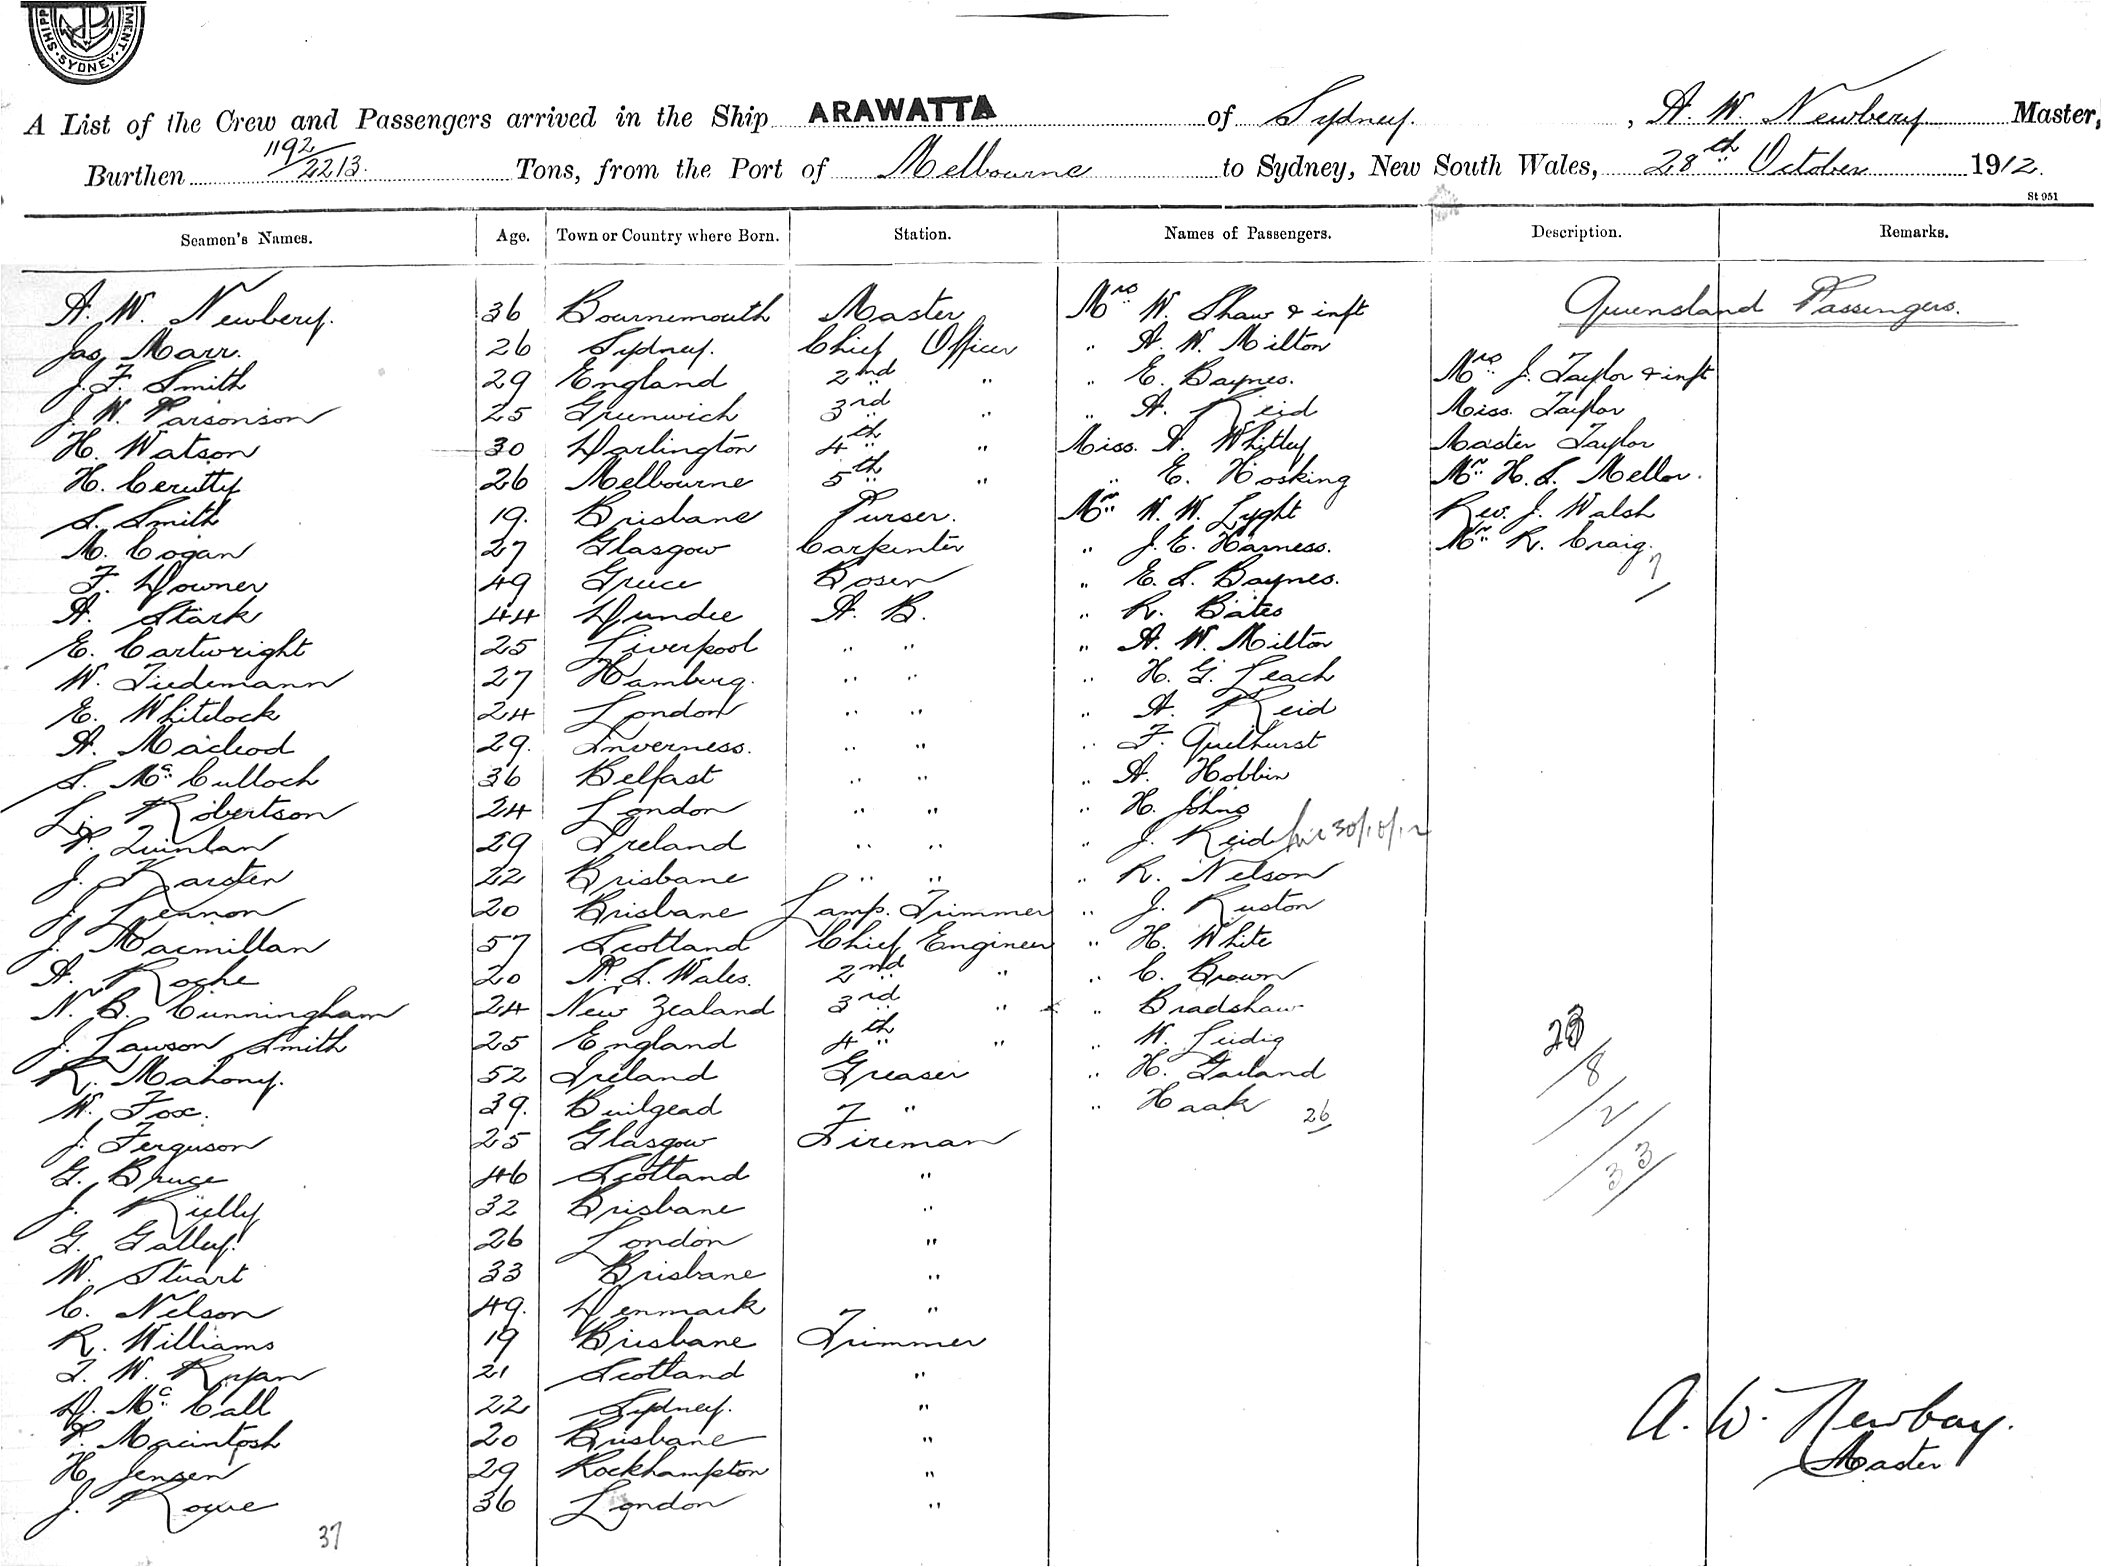 SHIPP TMENT. SYDNEY.
A List of the Crew and Passengers arrived in the Ship ARAWATTA of Sydney. , A. W. Newbery Master,
Burthen 1192/2213. Tons, from the Port of Melbourne to Sydney, New South Wales, 28th October 1912.
St 951
Seamen's Names. Age. Town or Country where Born. Station. Names of Passengers. Description. Remarks.
A. W. Newbery. 36 Bournemouth Master Mrs W. Shaw & inft Queensland Passengers.
Jas Marr. 26 Sydney. Chief Officer " A. W. Milton
J. F. Smith 29 England 2nd " " E. Baynes. Mrs J. Taylor & inft
J. W. Parsonson 25 Greenwich 3rd " " A. Reid Miss. Taylor
H. Watson 30 Darlington 4th " Miss. A. Whitley Master Taylor
H. Cerutty 26 Melbourne 5th " " E. Hosking Mr H. S. Mellor.
S. Smith 19. Brisbane Purser. Mr W. W. Lyght Rev. J. Walsh
M. Cogan 27 Glasgow Carpenter " J. E. Harness. Mr R. Craig.
F. Downer 49 Greece Bosen " E. S. Baynes. 7
A. Stark 44 Dundee A. B. " R. Bates
E. Cartwright 25 Liverpool " " " A. W. Milton
W. Tiedemann 27 Hamburg. " " " H. G. Leach
E. Whitelock 24 London " " " A. Reid
A. Macleod 29. Inverness. " " " F. Quilhurst
S. McCulloch 36 Belfast " " " A. Hobbin
L. Robertson 24 London " " " H. Johns
P. Quinlan 29 Ireland " " " J. Reid 30/10/12
J. Karsten 22 Brisbane " " " R. Nelson
J. Lennon 20 Brisbane Lamp. Trimmer " J. Ruston
J. Macmillan 57 Scotland Chief Engineer " H. White
A. Roche 20 N. S. Wales. 2nd " " C. Brown
N. B. Cunningham 24 New Zealand 3rd " " Bradshaw
J. Lawson Smith 25 England 4th " " W. Leidig 28
R. Mahony. 52 Ireland Greaser " H. Garland 8
W. Fox. 39. " " Haak 26 2
J. Ferguson 25 Glasgow Fireman
G. Bruce 46 Scotland " 33
J. Rielly 32 Brisbane "
G. Galley. 26 London "
W. Stuart 33 Brisbane "
C. Nelson 49. Denmark "
R. Williams 19 Brisbane Trimmer
T. W. Ryan 21 Scotland "
D. McCall 22 Sydney. "
P. Macintosh 20 Brisbane "
H. Jensen 29 Rockhampton "
J. Rowe 36 London "
37
A. W. Newbery.
Master